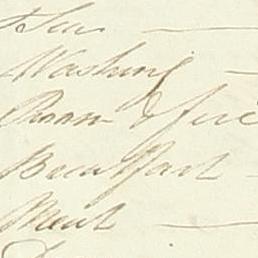 Tea
Washing
Room & fire
Breakfast
Meat